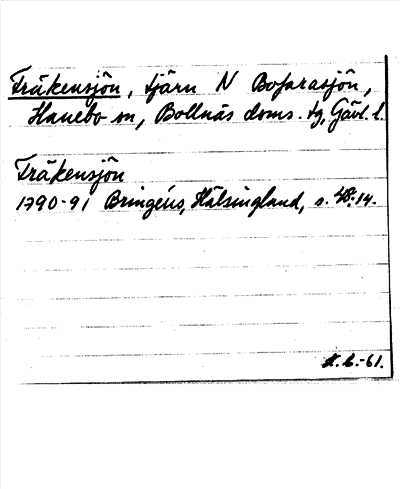 Fräkensjön, tjärn N Bofarasjön,
Hanebo sn, Bollnäs doms. tg, Gävl. l.
Fräkensjön
1790-91 Bringéus, Hälsingland, s. 14.
-61.